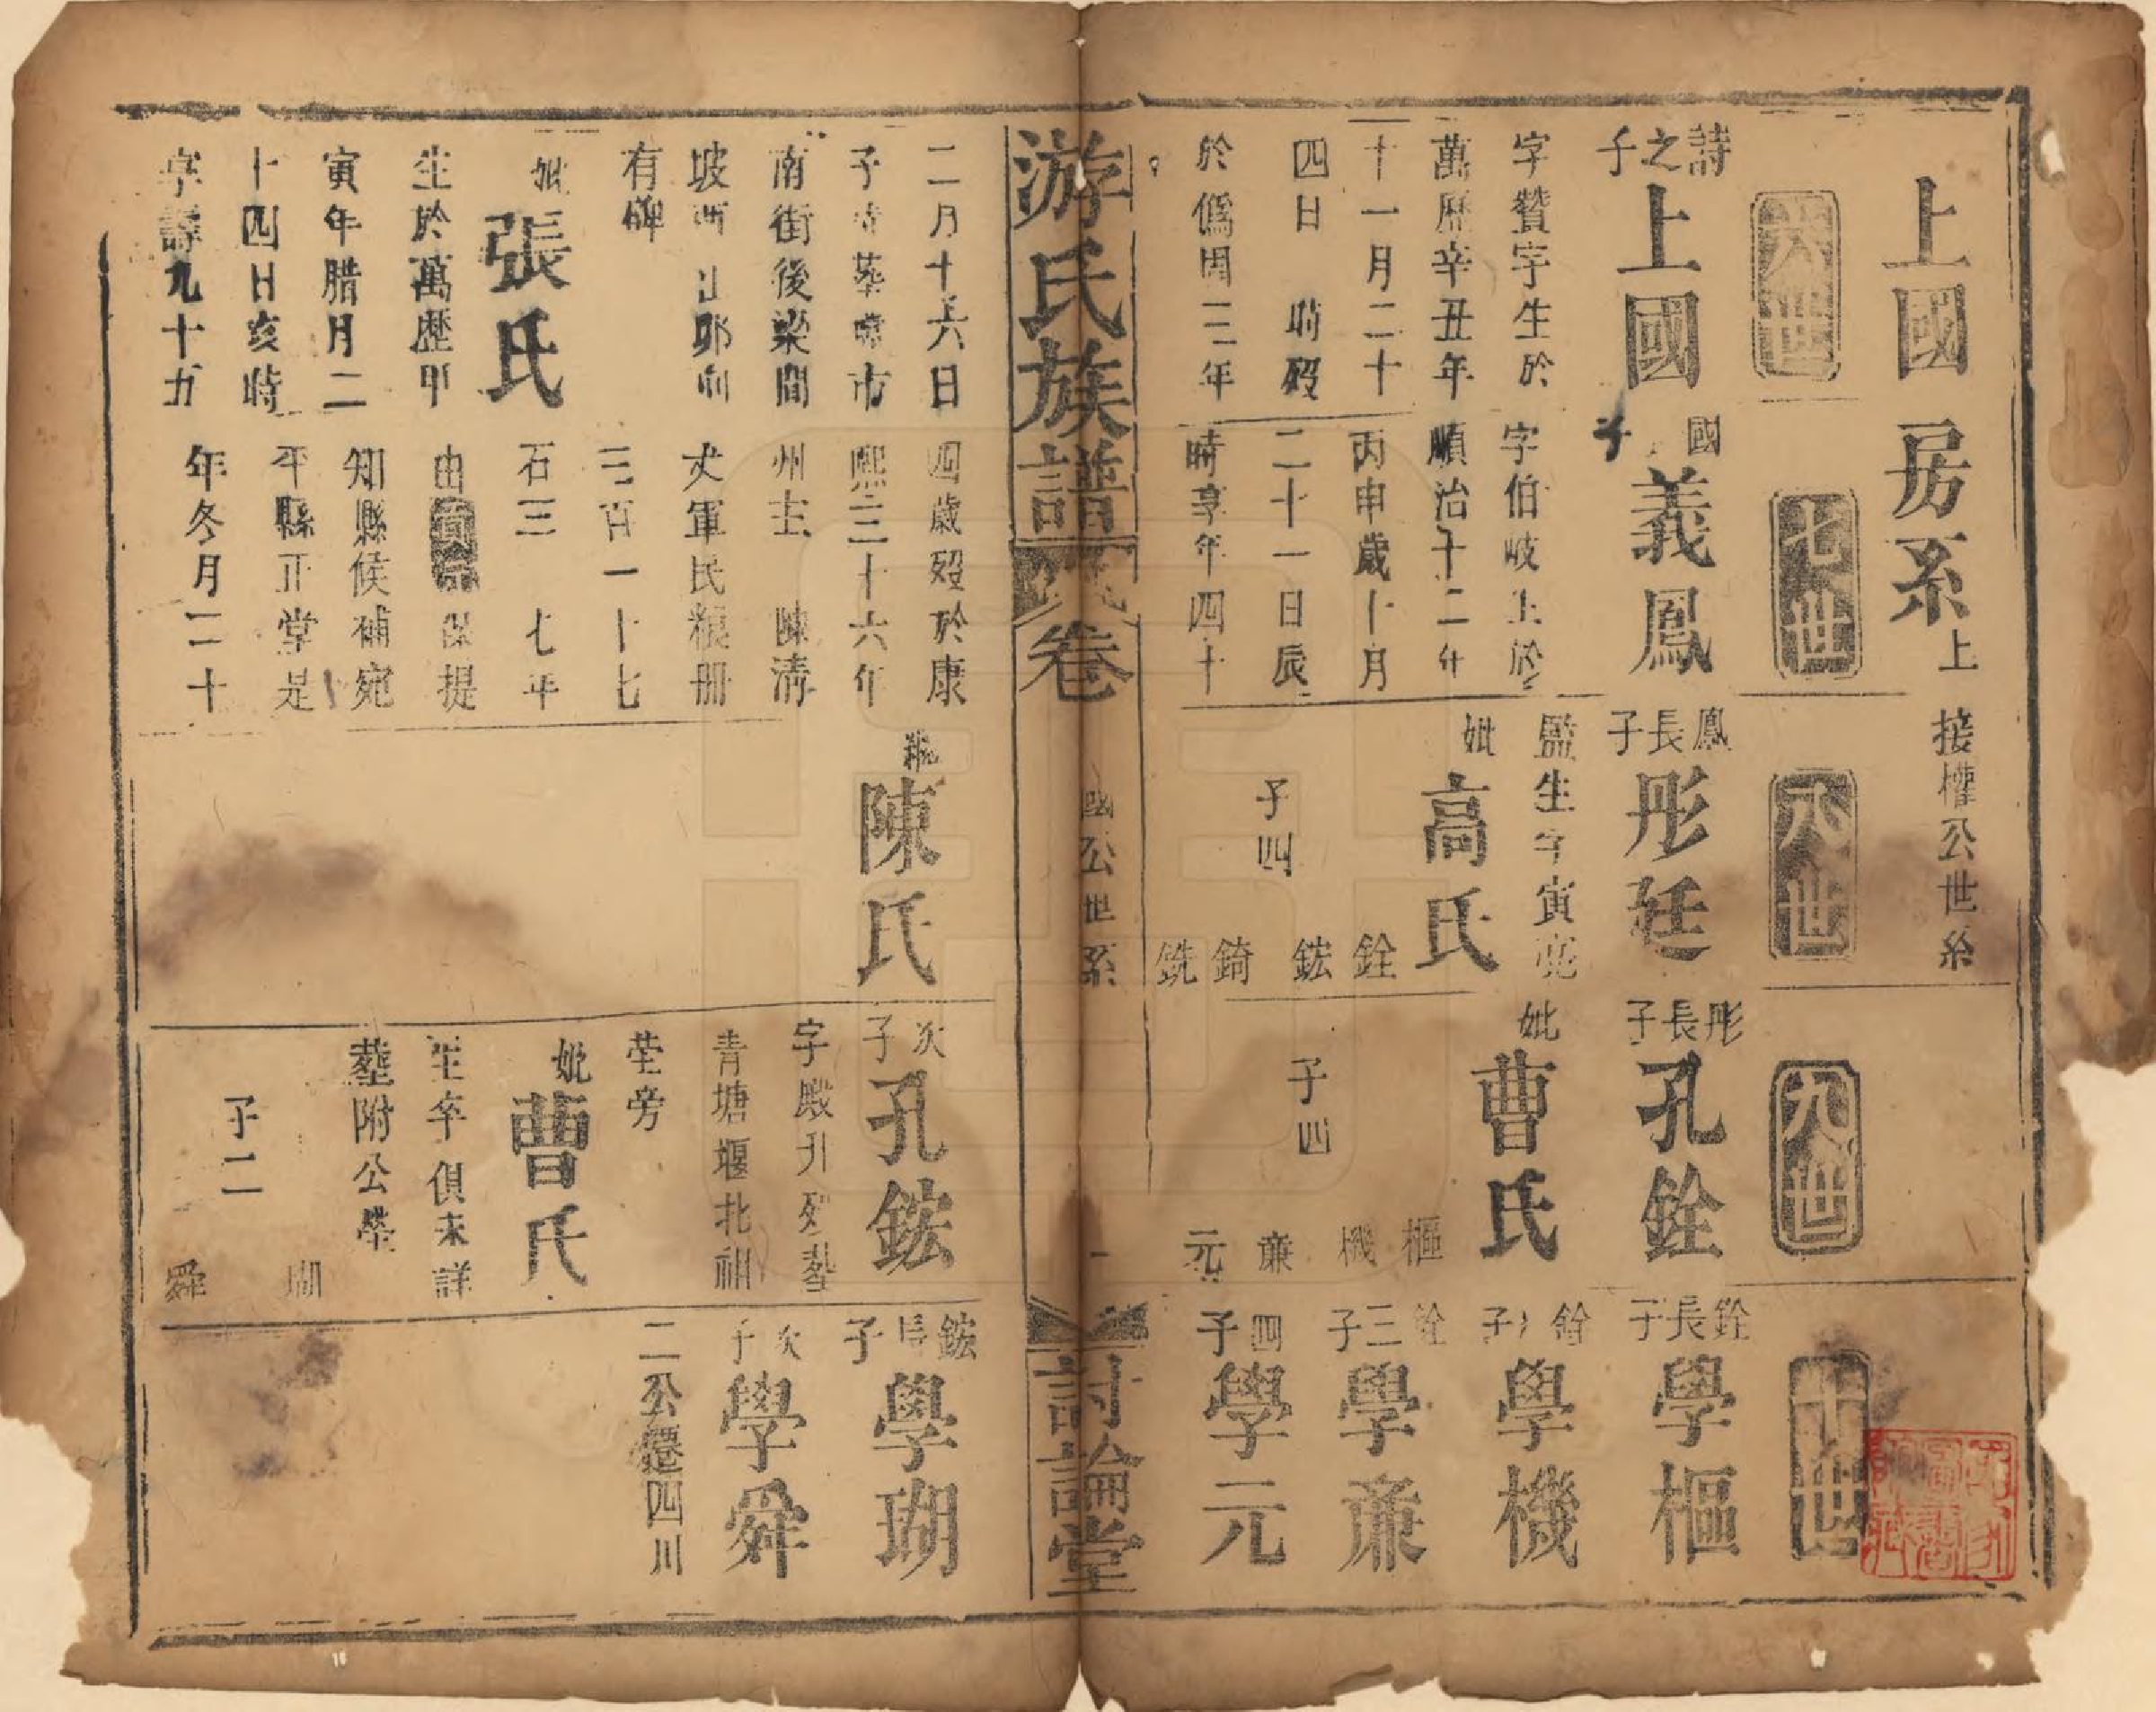 上國房系上
接權公世系
六世
詩之子
上國
字贊宇生於
萬歷辛丑年
十一月二十
四日 時歿
於僞周二年
二月十六日
子時葬 市
南街後梁間
坡西
有碑
妣
張氏
生於萬歷甲
寅年腊月二
十四日亥時
享壽九十五
七世
國子
義鳳
字伯岐生於
順治十二年
丙申歲十月
二十一日辰
時享年四十
四歲歿於康
熙三十六年
州主 陳清
丈軍民粮册
三百一十七
石三 七年
由 保提
知縣候補宛
平縣正堂是
年冬月二十
八世
鳳長子
彤廷
監生字寅亮
妣
高氏
子四
銓 鋐 錡 銑
陳氏
九世
彤長子
孔銓
妣
曹氏
子四
樞 機 亷 元
次子
孔鋐
字殿升歿塟
青塘堰北祖
塋旁
妣
曹氏
生卒俱未詳
塟附公塋
子二
瑚 舜
十世
銓長子
學樞
銓 子
學機
銓三子
學亷
四子
學元
鋐長子
學瑚
次子
學舜
二公遷四川
游氏族譜
卷
國公世系
一
討論堂